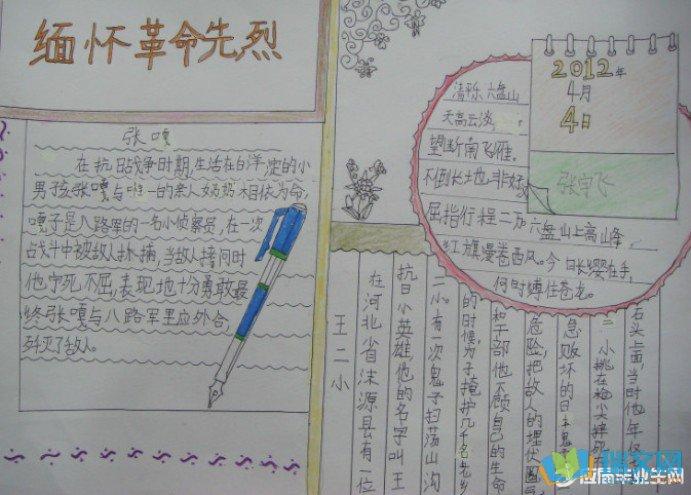 缅怀革命先烈
张嘎
在抗日战争时期,生活在白洋淀的小
男孩张嘎与唯一的亲人奶奶相依为命,
嘎子是八路军的一名小侦察员,在一次
战斗中被敌人抓捕,当敌人拷问时
他宁死不屈,表现地十分勇敢最
终张嘎与八路军里应外合,
歼灭了敌人。
2012年
4月
4日
张宇飞
清平乐 六盘山
天高云淡,
望断南飞雁。
不到长城非好
屈指行程二万 六盘山上高峰,
红旗漫卷西风。今日长缨在手,
何时缚住苍龙。
王二小
在河北省涞源县有一位
抗日小英雄,他的名字叫王
二小。有一次鬼子扫荡山沟
的时候,为了掩护几千名老乡
和干部他不顾自己的生命
危险,把敌人的埋伏圈
急败坏的日本鬼
二小挑在枪尖摔死
石头上面,当时他年仅
应届毕业生网